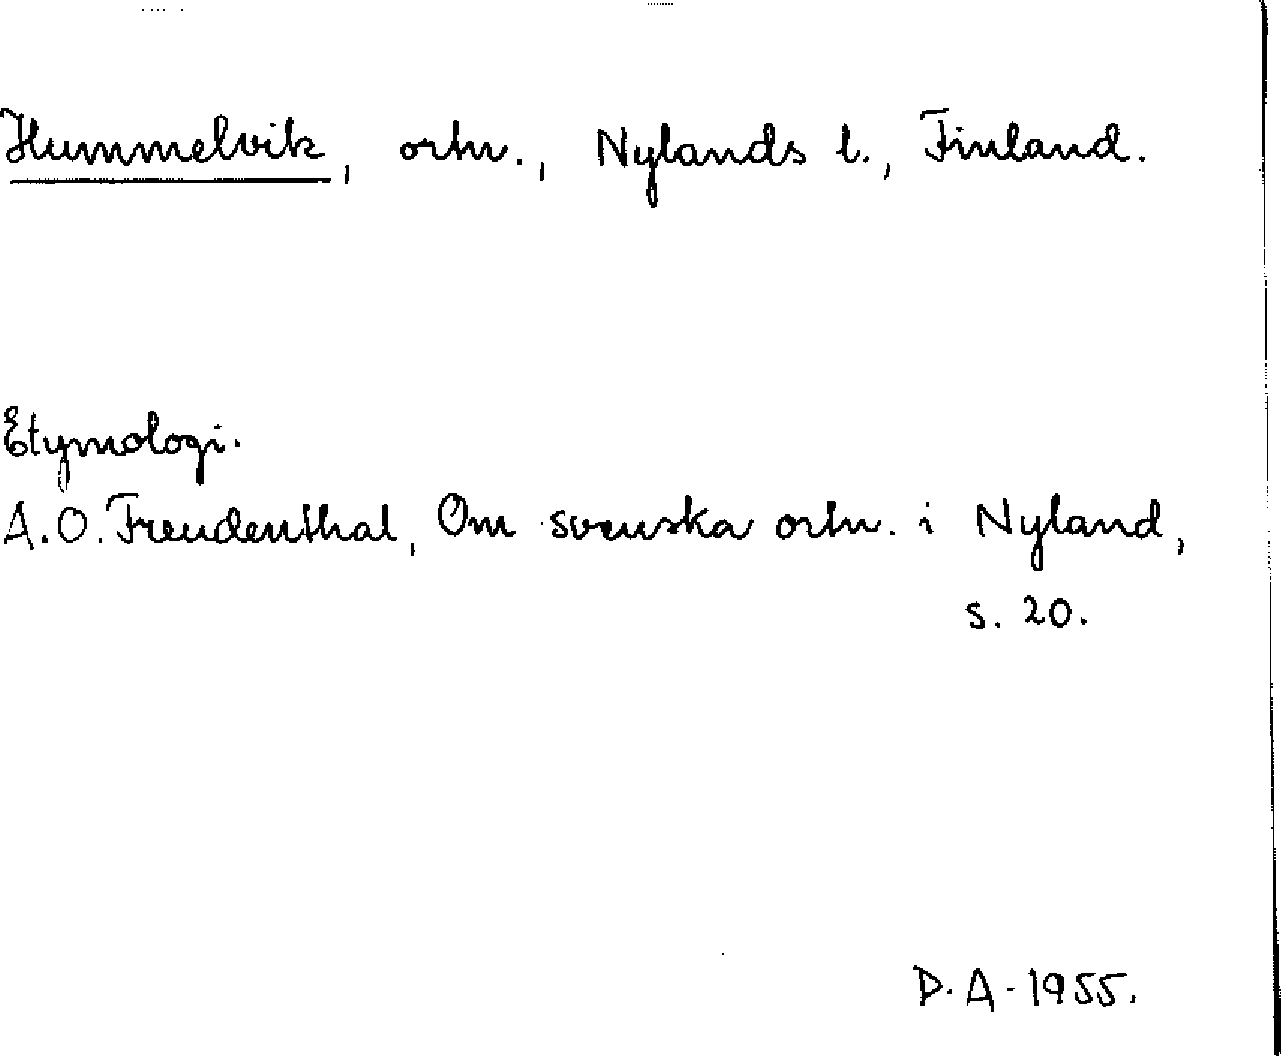 Hummelvik, ortn., Nylands l., Finland.
Etymologi.
A.O. Freudenthal, Om svenska ortn. i Nyland,
s. 20.
D.A. 1955.